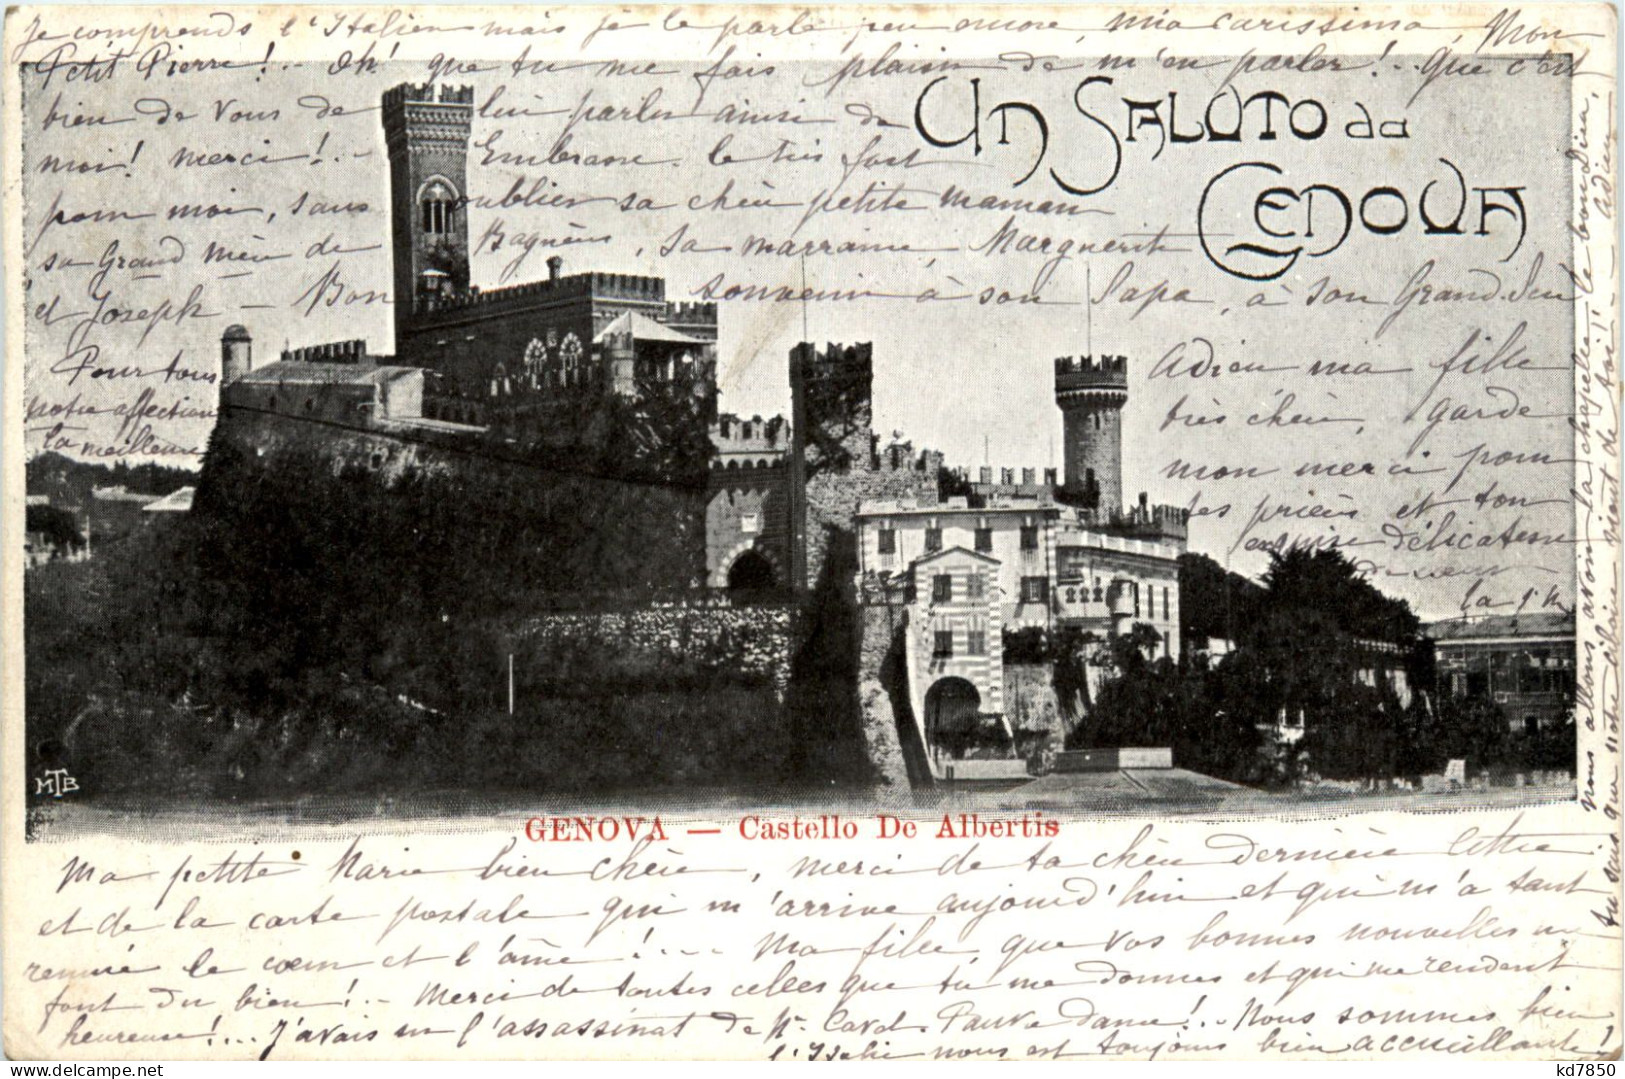 Je comprends l'Italien mais je le parle peu encore, mia carissima, Mon
Petit Pierre!.. Oh! que tu me fais plaisir de m'en parler!.. Que c'est
bien de vous de lui parler ainsi de
moi! merci!.. Embrasse-le très fort
pour moi, sans oublier sa chère petite maman
sa Grand mère de Bagnères, sa marraine, Marguerite
et Joseph — Bon souvenir à son Papa, à son Grand.
Un Saluto da
Genova
Pour tous
notre affection
la meilleure
Adieu ma fille
très chère, garde
mon merci pour
tes prières et ton
exquise délicatesse
de cœur
la
MTB
GENOVA — Castello De Albertis
Ma petite Marie bien chère, merci de ta chère dernière lettre
et de la carte postale qui m'arrive aujourd'hui et qui m'a tant
remué le cœur et l'âme!... Ma fille, que vos bonnes nouvelles me
font du bien!.. Merci de toutes celles que tu me donnes et qui me rendent
heureuse!... J'avais su l'assassinat de Pauvre dame!.. Nous sommes bien
l'Italie nous est toujours bien accueillante!
nous allons avoir la chapelle le bon Dieu,
tu sais que notre vient de toi!! — Adieu
kd7850